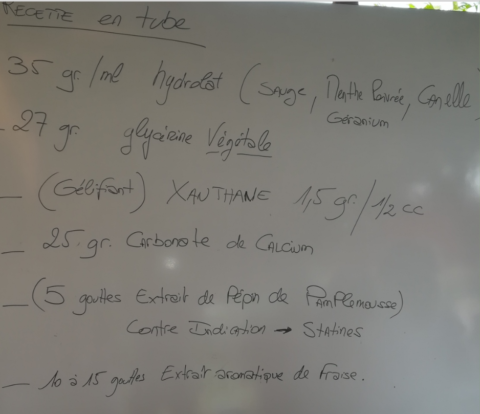 RECETTE en tube
35 gr/ml hydrolat (SAUGE, Menthe Poivrée, CANELLE
Géranium
- 27 gr. glycérine Végétale
- (Gélifiant) XANTHANE 1,5 gr. / 1/2 cc
- 25 gr. Carbonate de CALCIUM
- (5 gouttes Extrait de Pépin de PAMPLEMOUSSE)
Contre Indication → STATINES
- 10 à 15 gouttes Extrait aromatique de Fraise.